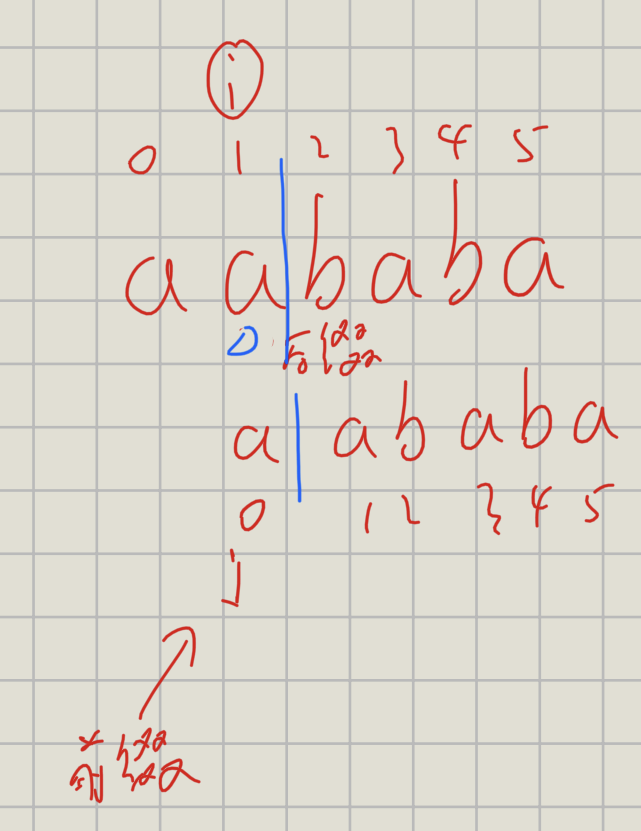 i
0 1 2 3 4 5
a a b a b a
0
a a b a b a
0 1 2 3 4 5
j